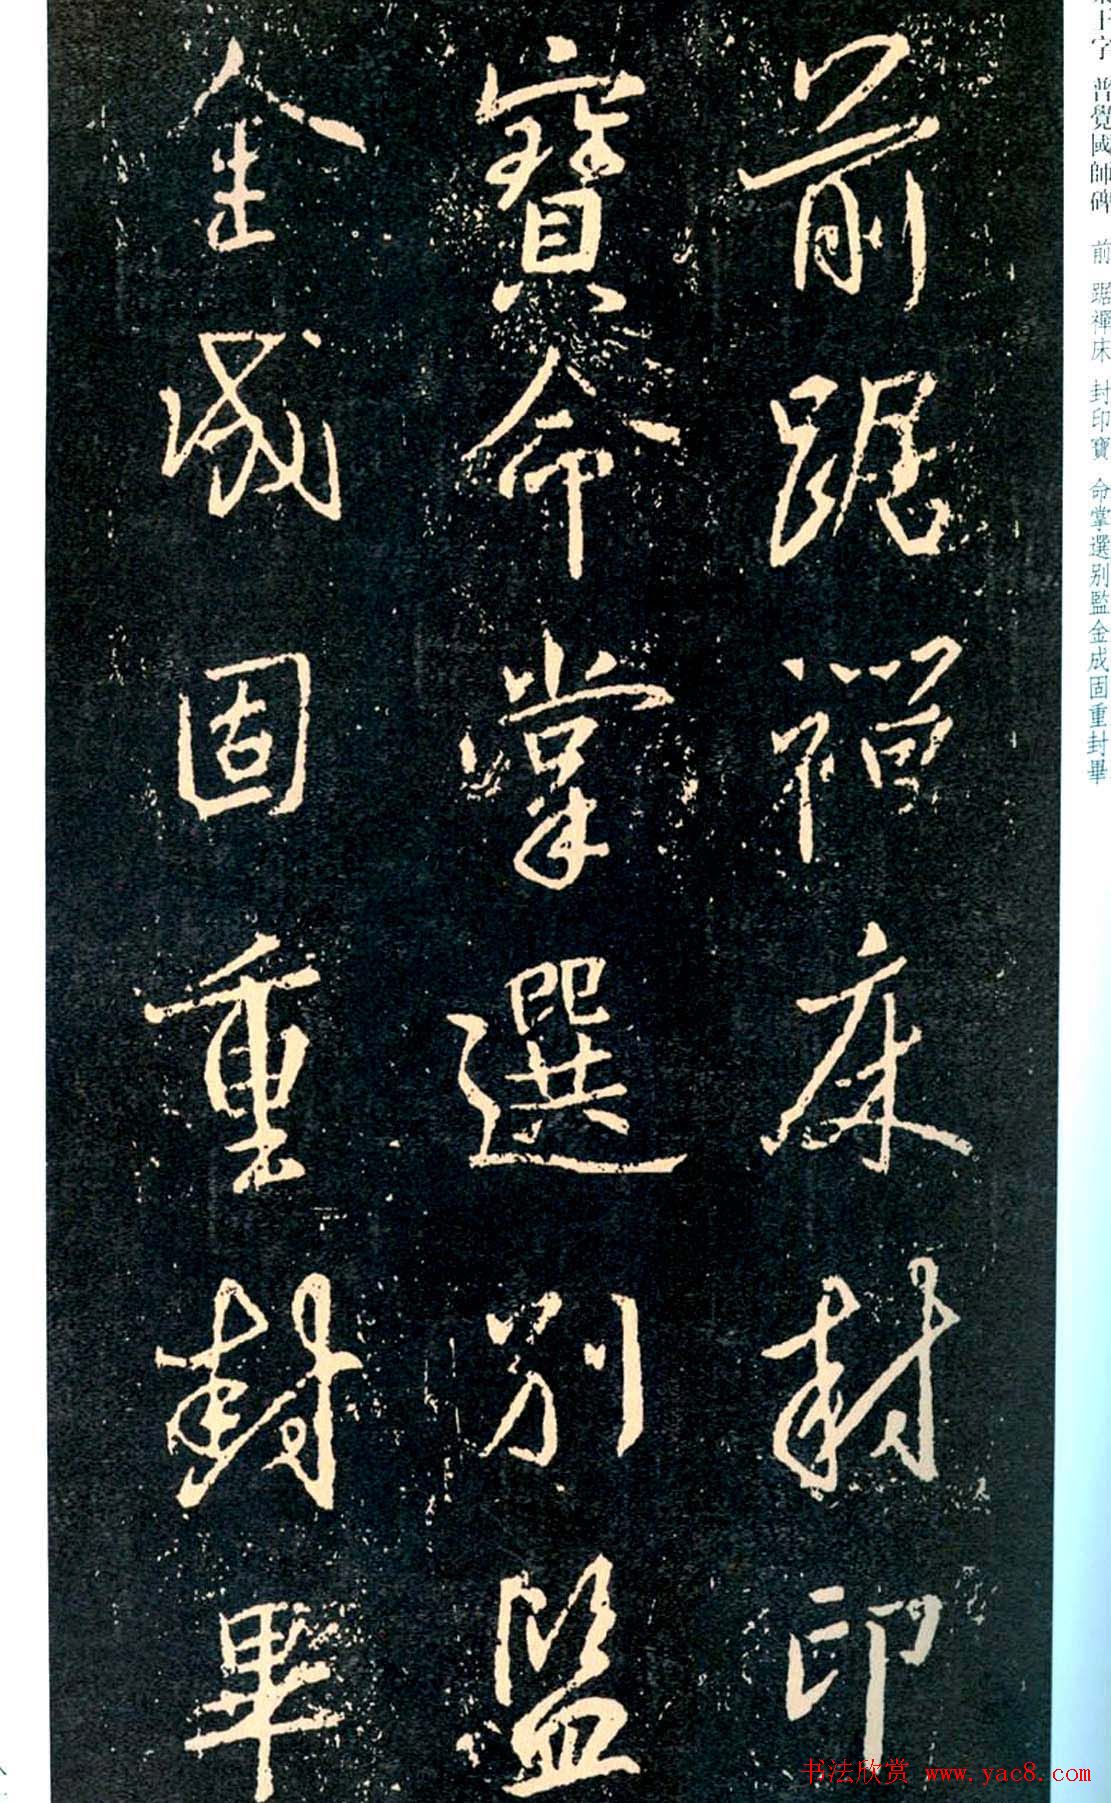 前踞禪床封印
寶命掌選别監
金成固重封畢
王字 普覺國師碑 前 踞禪床 封印寶 命掌選别監金成固重封畢
书法欣赏 www.yac8.com